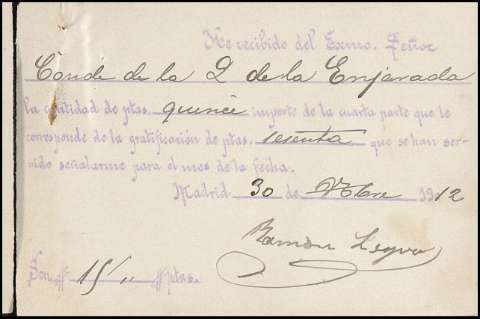 He recibido del Exmo. Señor
Conde de la Q de la Enjarada
la cantidad de ptas. quince importe de la cuarta parte que le
corresponde de la gratificación de ptas. sesenta que se han ser-
vido señalarme para el mes de la fecha.
Madrid 30 de 1912
Ramon Leyva
Son 15/ ptas.